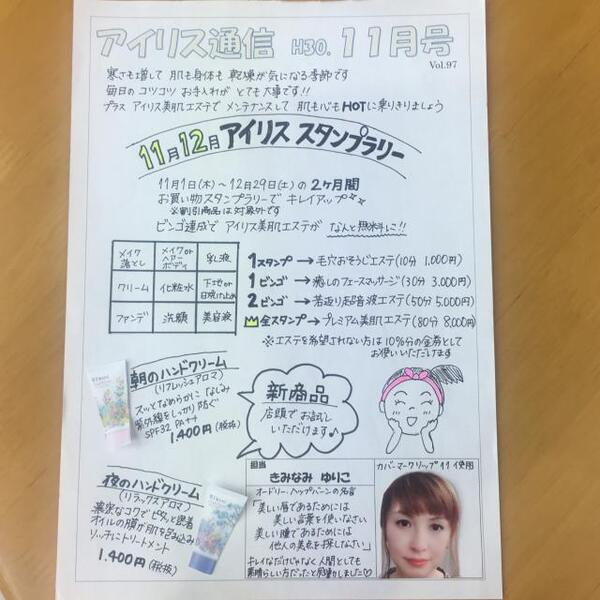 アイリス通信 H30. 11月号
Vol.97
寒さも増して 肌も身体も 乾燥が気になる季節です
毎日のコツコツ お手入れが とても大事です!!
プラス アイリス美肌エステで メンテナンスして 肌も心もHOTに乗りきりましょう
11月12月 アイリス スタンプラリー
11月1日(木)～12月29日(土)の 2ヶ月間
お買い物スタンプラリーで キレイアップ
※割引商品は対象外です
ビンゴ達成で アイリス美肌エステが なんと無料に!!
メイク落とし
メイクorヘアーボディ
乳液
クリーム
化粧水
下地or日焼け止め
ファンデ
洗顔
美容液
1スタンプ→毛穴おそうじエステ(10分 1,000円)
1ビンゴ→癒しのフェースマッサージ(30分 3,000円)
2ビンゴ→若返り超音波エステ(50分 5,000円)
全スタンプ→プレミアム美肌エステ(80分 8,000円)
※エステを希望されない方は10%分の金券として
お使いいただけます
朝のハンドクリーム
(リフレッシュアロマ)
スッとなめらかに なじみ
紫外線をしっかり防ぐ
SPF32 PA++
1,400円(税抜)
新商品
店頭でお試し
いただけます♪
夜のハンドクリーム
(リラックスアロマ)
濃密なコクでピタッと密着
オイルの膜が肌を包み込み
リッチにトリートメント
1,400円(税抜)
担当
きみなみ ゆりこ
オードリー・ヘップバーンの名言
「美しい唇であるためには
美しい言葉を使いなさい
美しい瞳であるためには
他人の美点を探しなさい」
キレイなだけじゃなく人間としても
素晴らしい方だったと感動しました♡
カバーマークリップ11使用